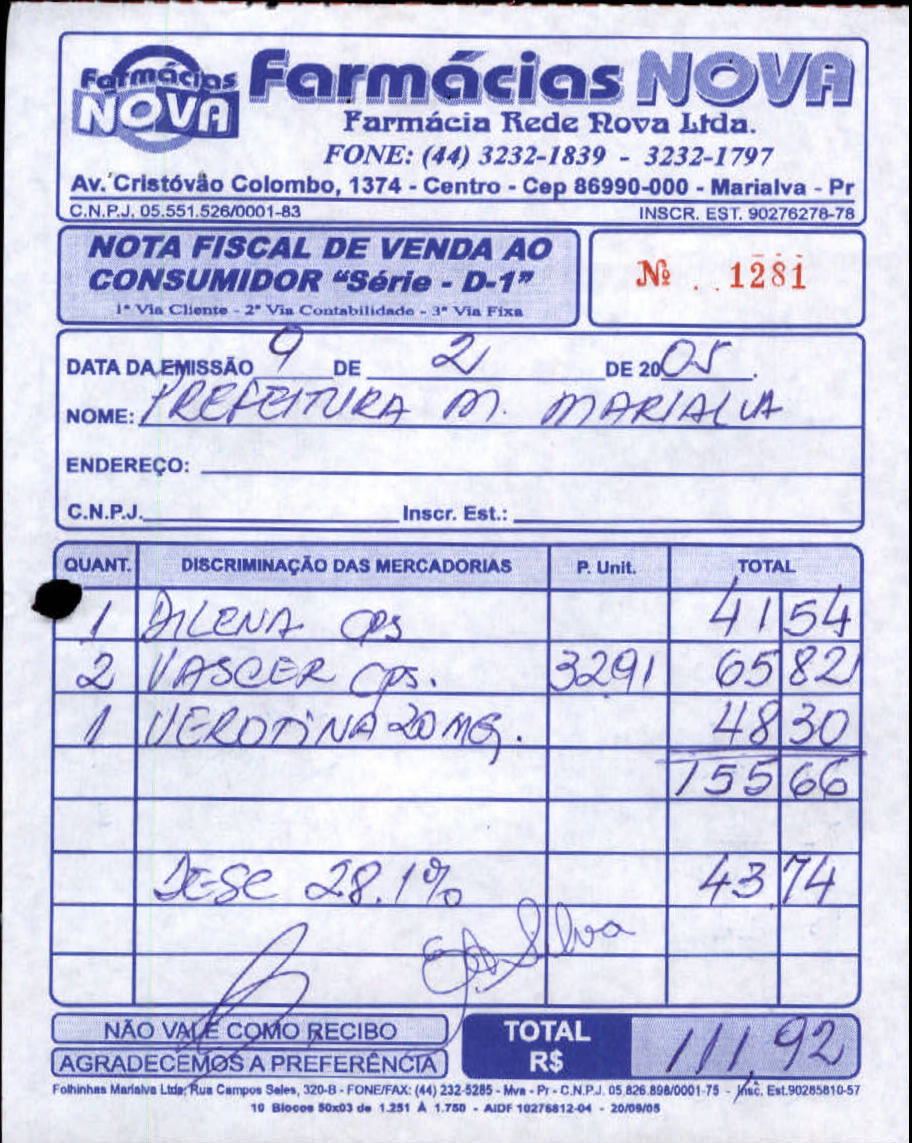 Farmácias NOVA
Farmácias NOVA
Farmácia Rede Nova Ltda.
FONE: (44) 3232-1839 - 3232-1797
Av. Cristóvão Colombo, 1374 - Centro - Cep 86990-000 - Marialva - Pr
C.N.P.J. 05.551.526/0001-83 INSCR. EST. 90276278-78
NOTA FISCAL DE VENDA AO
CONSUMIDOR "Série - D-1"
1ª Via Cliente - 2ª Via Contabilidade - 3ª Via Fixa
Nº 1281
DATA DA EMISSÃO 9 DE 2 DE 2005.
NOME: PREFEITURA M. MARIALVA
ENDEREÇO:
C.N.P.J. Inscr. Est.:
QUANT. DISCRIMINAÇÃO DAS MERCADORIAS P. Unit. TOTAL
1 DILENA cps 41 54
2 VASCER cps. 3291 65 82
1 VEROTINA 20 MG. 48 30
155 66
DESC 28.1% 43.74
Silva
NÃO VALE COMO RECIBO
AGRADECEMOS A PREFERÊNCIA
TOTAL
R$ 111,92
Folhinhas Marialva Ltda; Rua Campos Sales, 320-B - FONE/FAX: (44) 232-5285 - Mva - Pr - C.N.P.J. 05.826.898/0001-75 - Insc. Est.90285810-57
10 Blocos 50x03 de 1.251 À 1.750 - AIDF 10276812-04 - 20/09/05